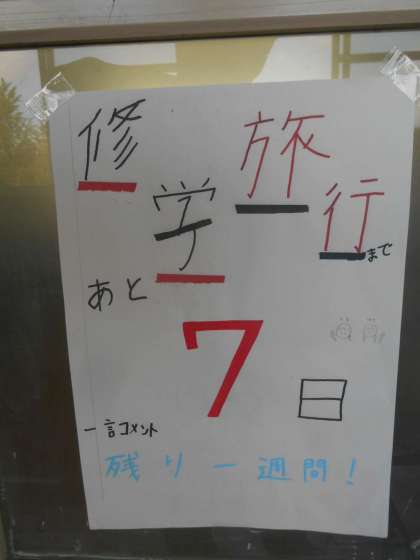 修学旅行まで
あと
7日
一言コメント
残り一週間!